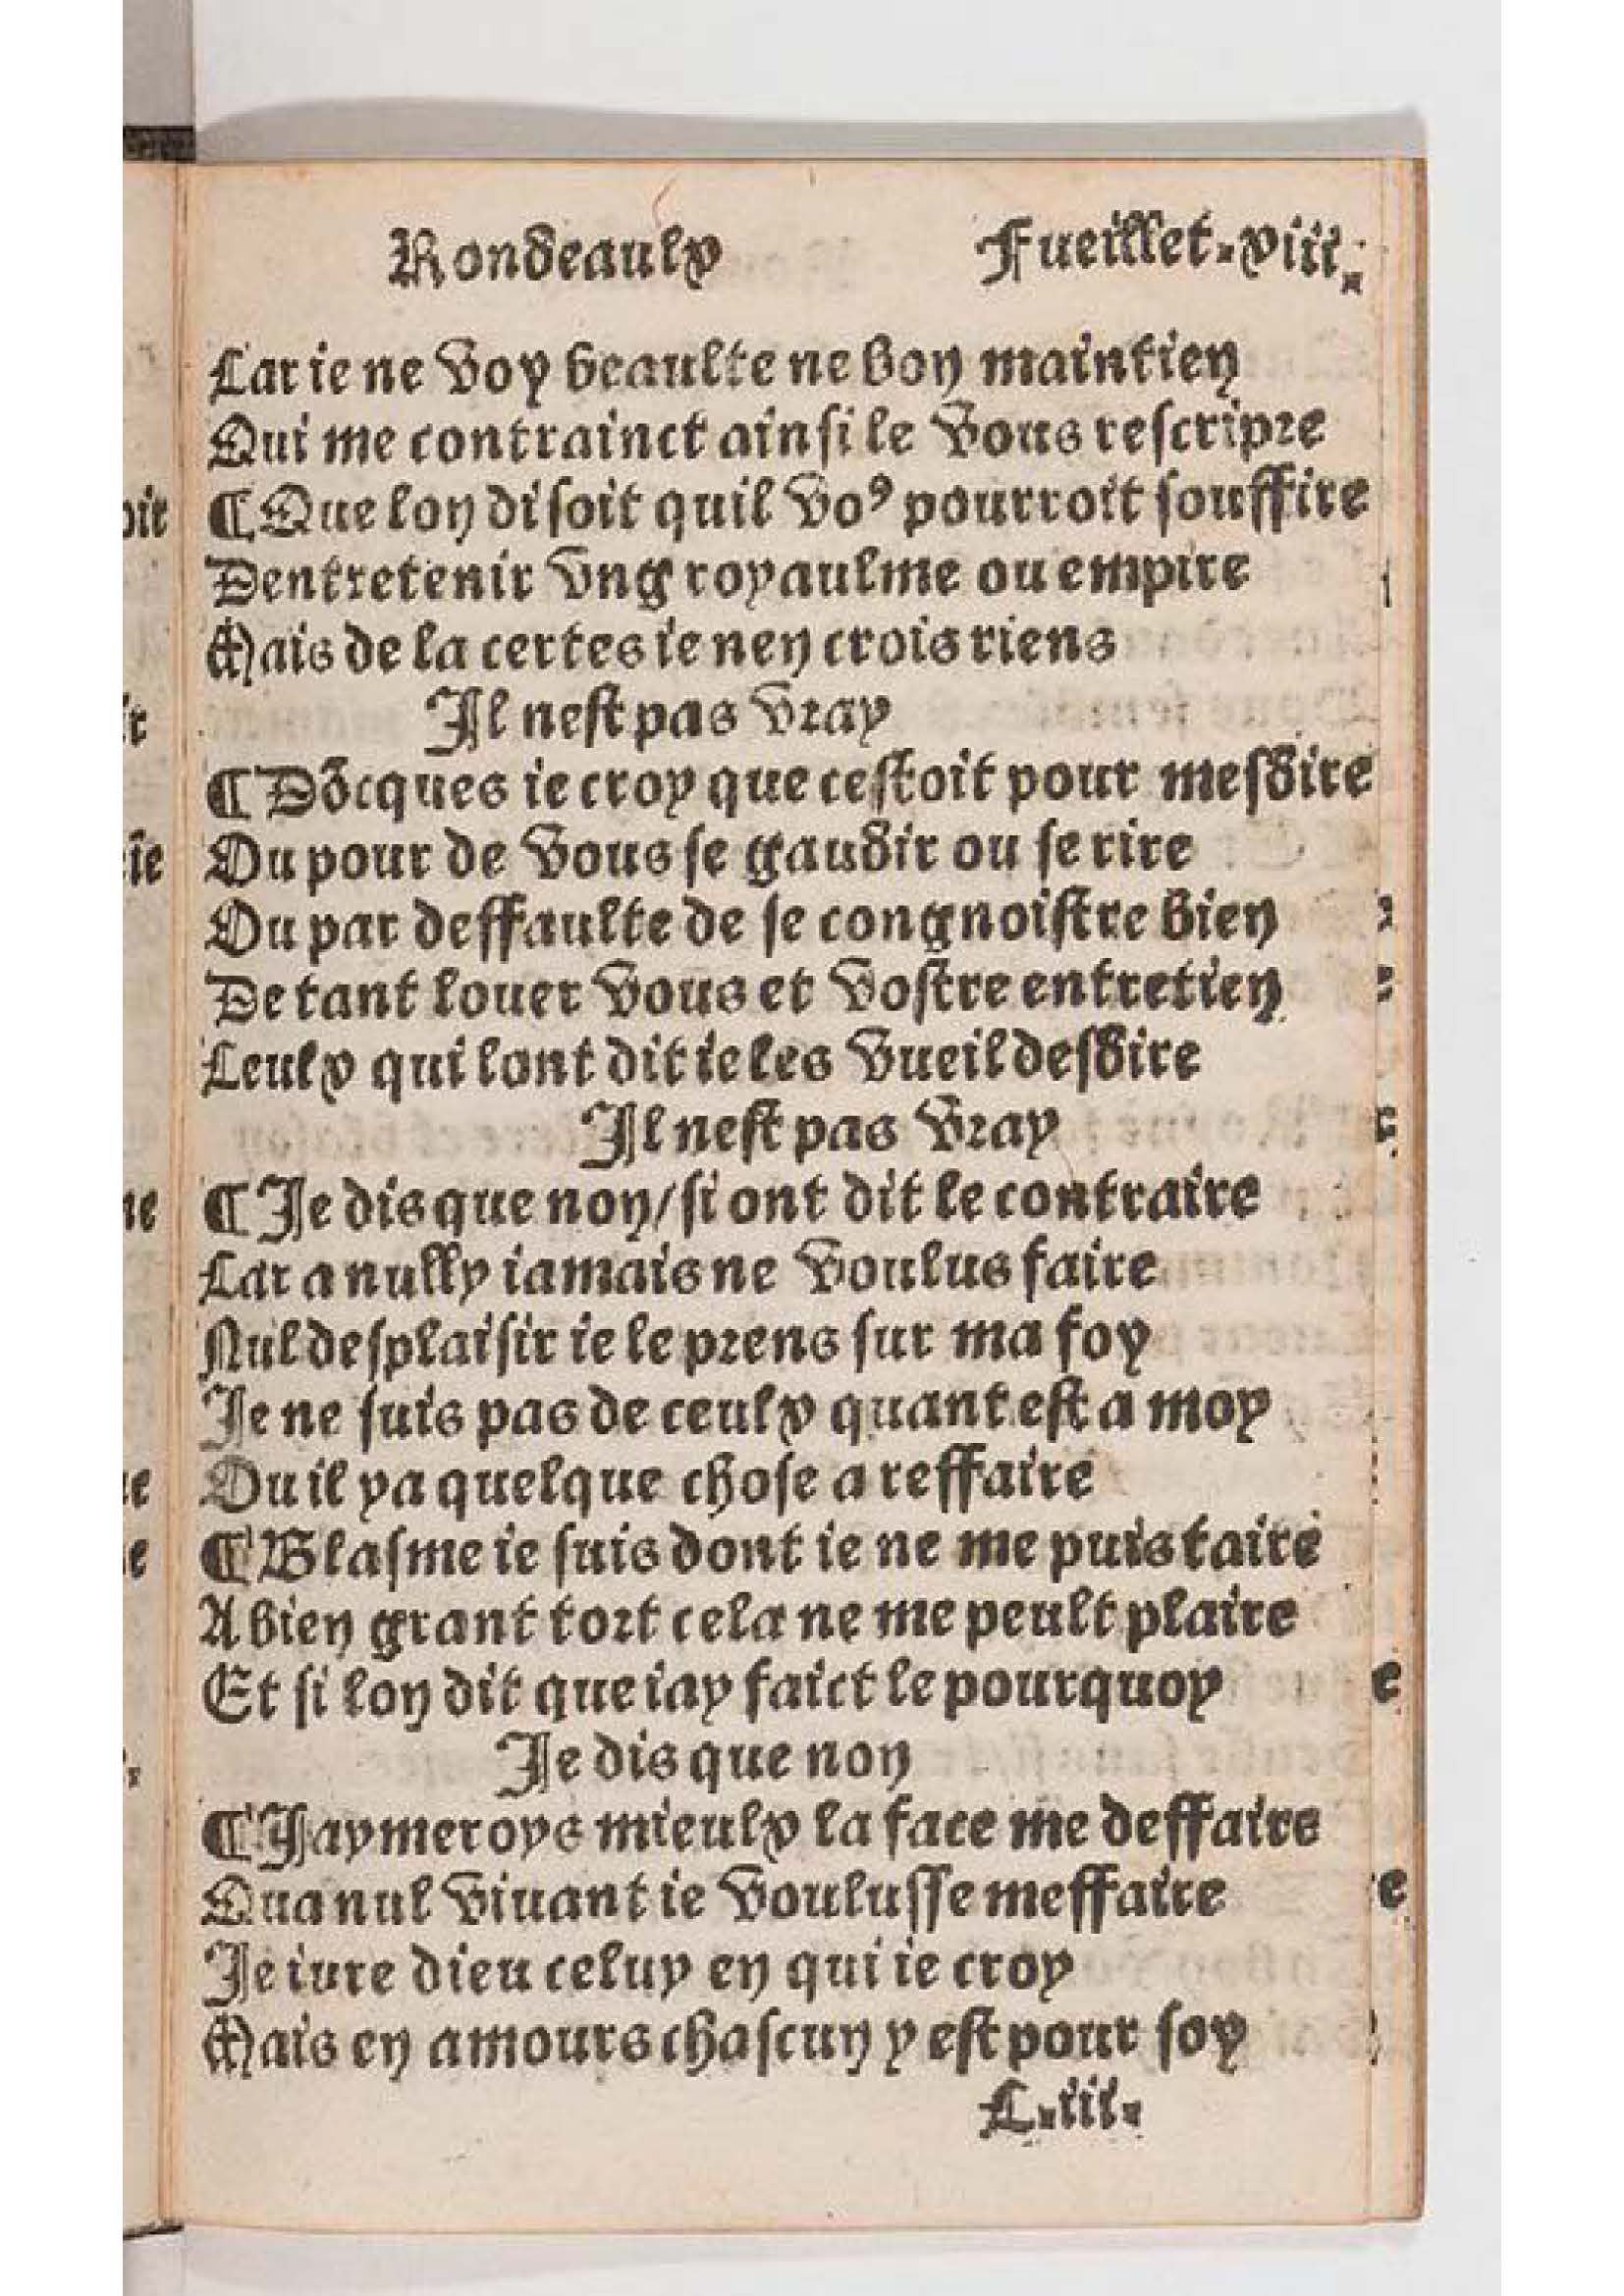 Rondeaulx Fueillet.viii.
Car ie ne voy beaulte ne bon maintien
Qui me contrainct ainsi le vous rescripre
¶Que lon disoit quil voꝰ pourroit souffire
Dentretenir vng royaulme ou empire
Mais de la certes ie nen crois riens
Il nest pas vray
¶Dõcques ie croy que cestoit pour mesdire
Ou pour de vous se gaudir ou se rire
Ou par deffaulte de se congnoistre bien
De tant louer vous et vostre entretien
Ceulx qui lont dit ie les vueil desdire
Il nest pas vray
¶Je dis que non/si ont dit le contraire
Car a nully iamais ne voulus faire
Nul desplaisir ie le prens sur ma foy
Je ne suis pas de ceulx quant est a moy
Ou il ya quelque chose a reffaire
¶Blasme ie suis dont ie ne me puis taire
A bien grant tort cela ne me peult plaire
Et si lon dit que iay faict le pourquoy
Je dis que non
¶Jaymeroys mieulx la face me deffaire
Qua nul viuant ie voulusse meffaire
Je iure dieu celuy en qui ie croy
Mais en amours chascun y est pour soy
C.iii.